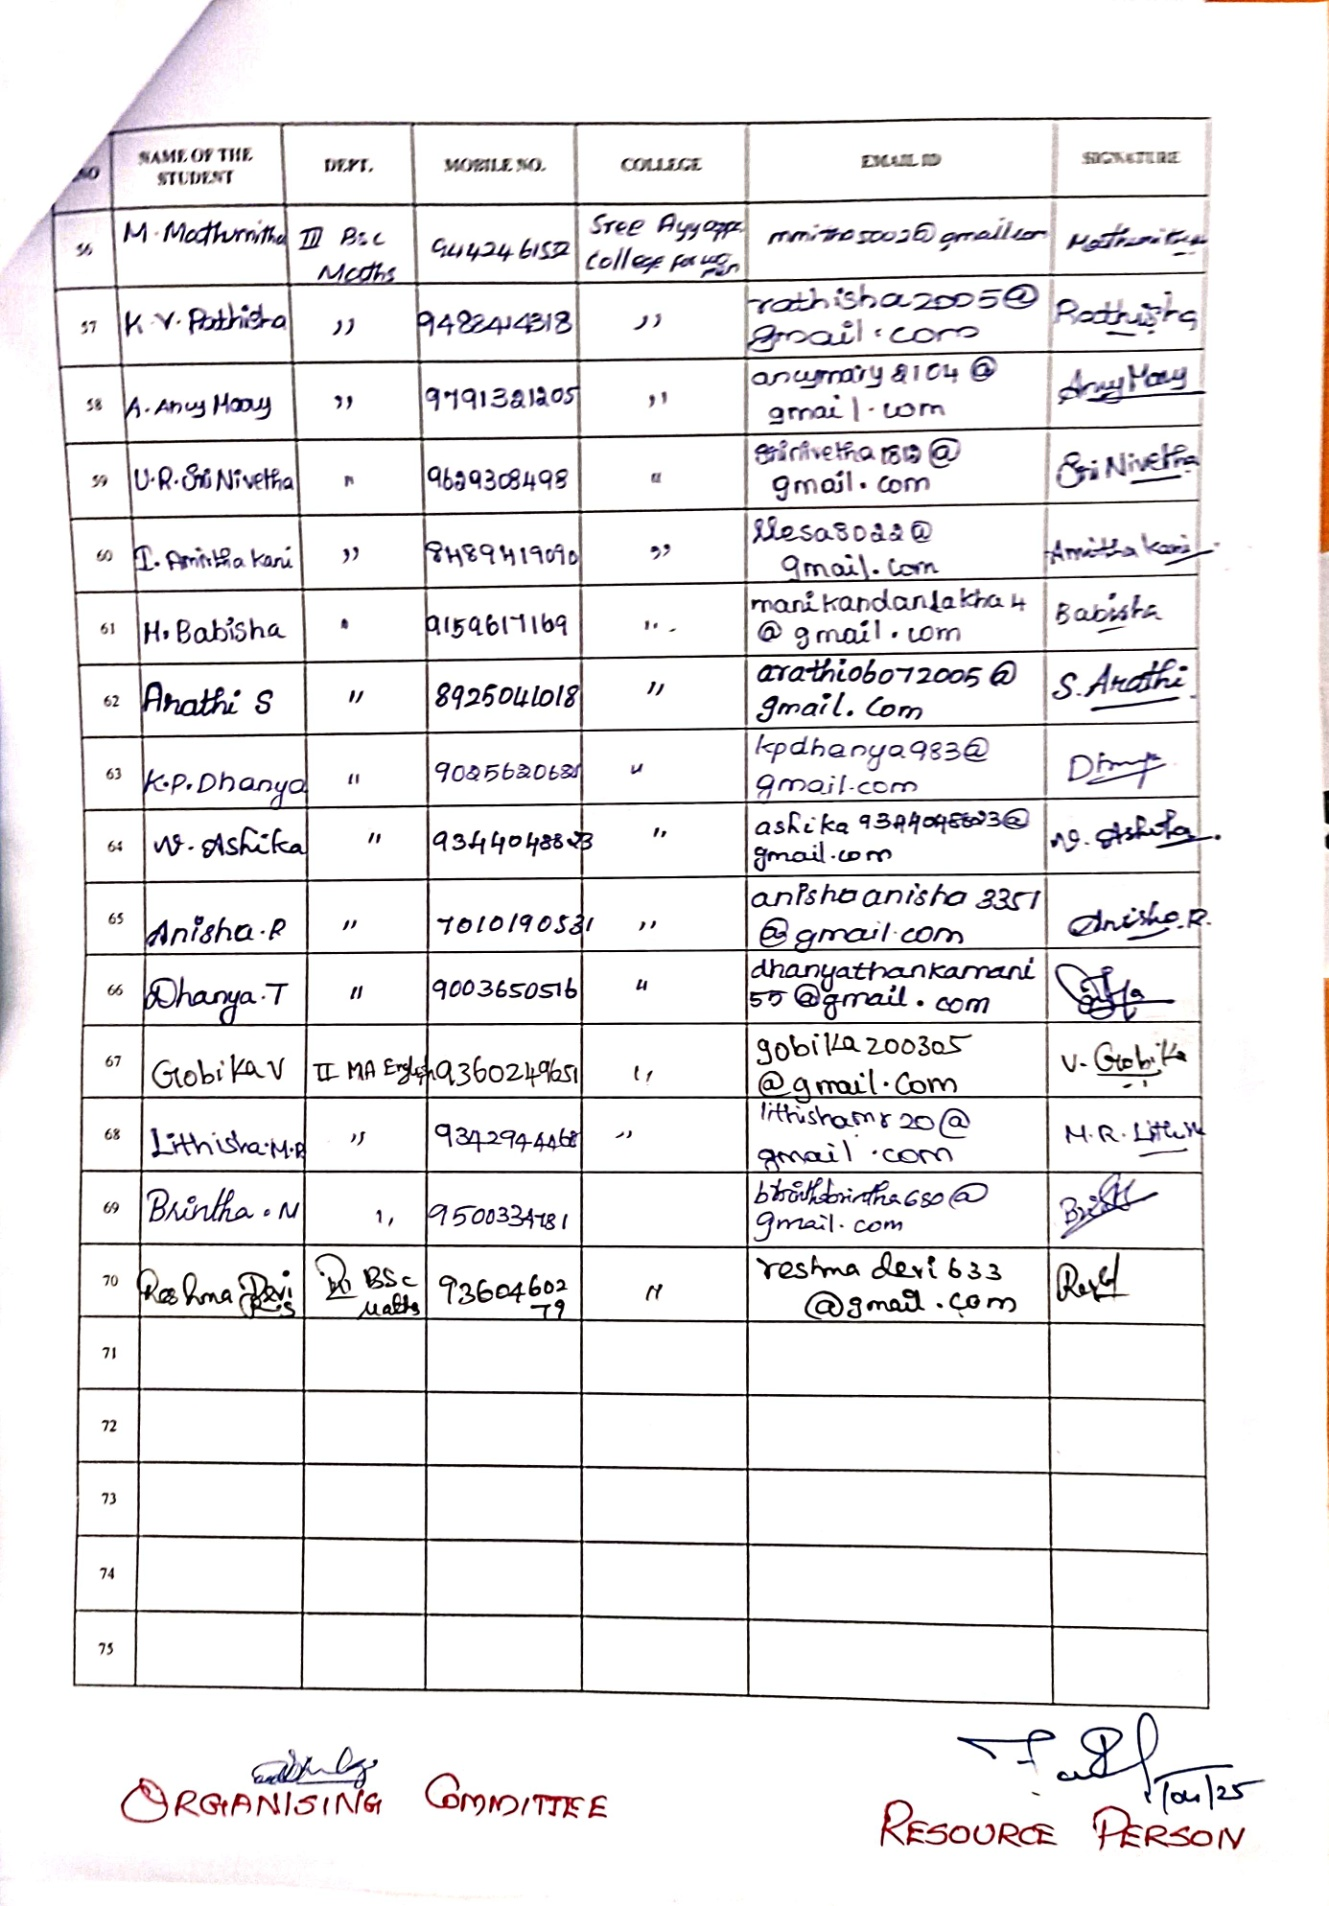 NO NAME OF THE STUDENT DEPT. MOBILE NO. COLLEGE EMAIL ID SIGNATURE
56 M. Mathumitha III BSc Maths Sree Ayyappa College for women
57 K. V. Rathisha ,, ,, rathisha2005@gmail.com Rathisha
58 A. Ancy Mary ,, 9791321205 ,, ancymary2104@gmail.com Ancy Mary
59 U.R. Sri Nivetha " 9629308498 " srinivetha1812@gmail.com Sri Nivetha
60 I. Amirtha Kani ,, 8489419090 ,, gmail.com Amirtha Kani
61 H. Babisha " 9159617169 " @gmail.com Babisha
62 Arathi S " 8925041018 " arathi06072005@gmail.com S. Arathi
63 K.P. Dhanya " " kpdhanya983@gmail.com
64 V. Ashika " " gmail.com V. Ashika
65 Anisha. R " 7010190531 ,, anishaanisha3351@gmail.com Anisha. R.
66 Dhanya. T " 9003650516 " dhanyathankamani55@gmail.com
67 Gobika V II MA English 9360249651 ,, gobika200305@gmail.com V. Gobika
68 Lithisha. M.R ,, 9342944468 ,, lithishamr20@gmail.com M.R.
69 Brintha. N ,, gmail.com
70 Reshma Devi BSc Maths 9360460279 " reshmadevi633@gmail.com
71
72
73
74
75
ORGANISING COMMITTEE
RESOURCE PERSON